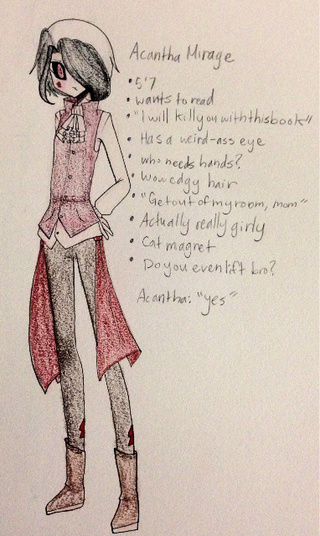 Acantha Mirage
• 5'7
• wants to read
• "I will kill you with this book"
• Has a weird-ass eye
• who needs hands?
• Wow edgy hair
• "Get out of my room, mom"
• Actually really girly
• Cat magnet
• Do you even lift bro?
Acantha: "yes"